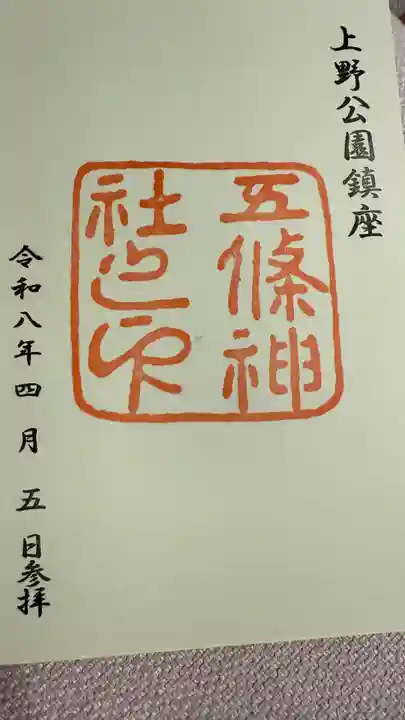 上野公園鎮座
五條神
社之印
令和八年四月五日参拝